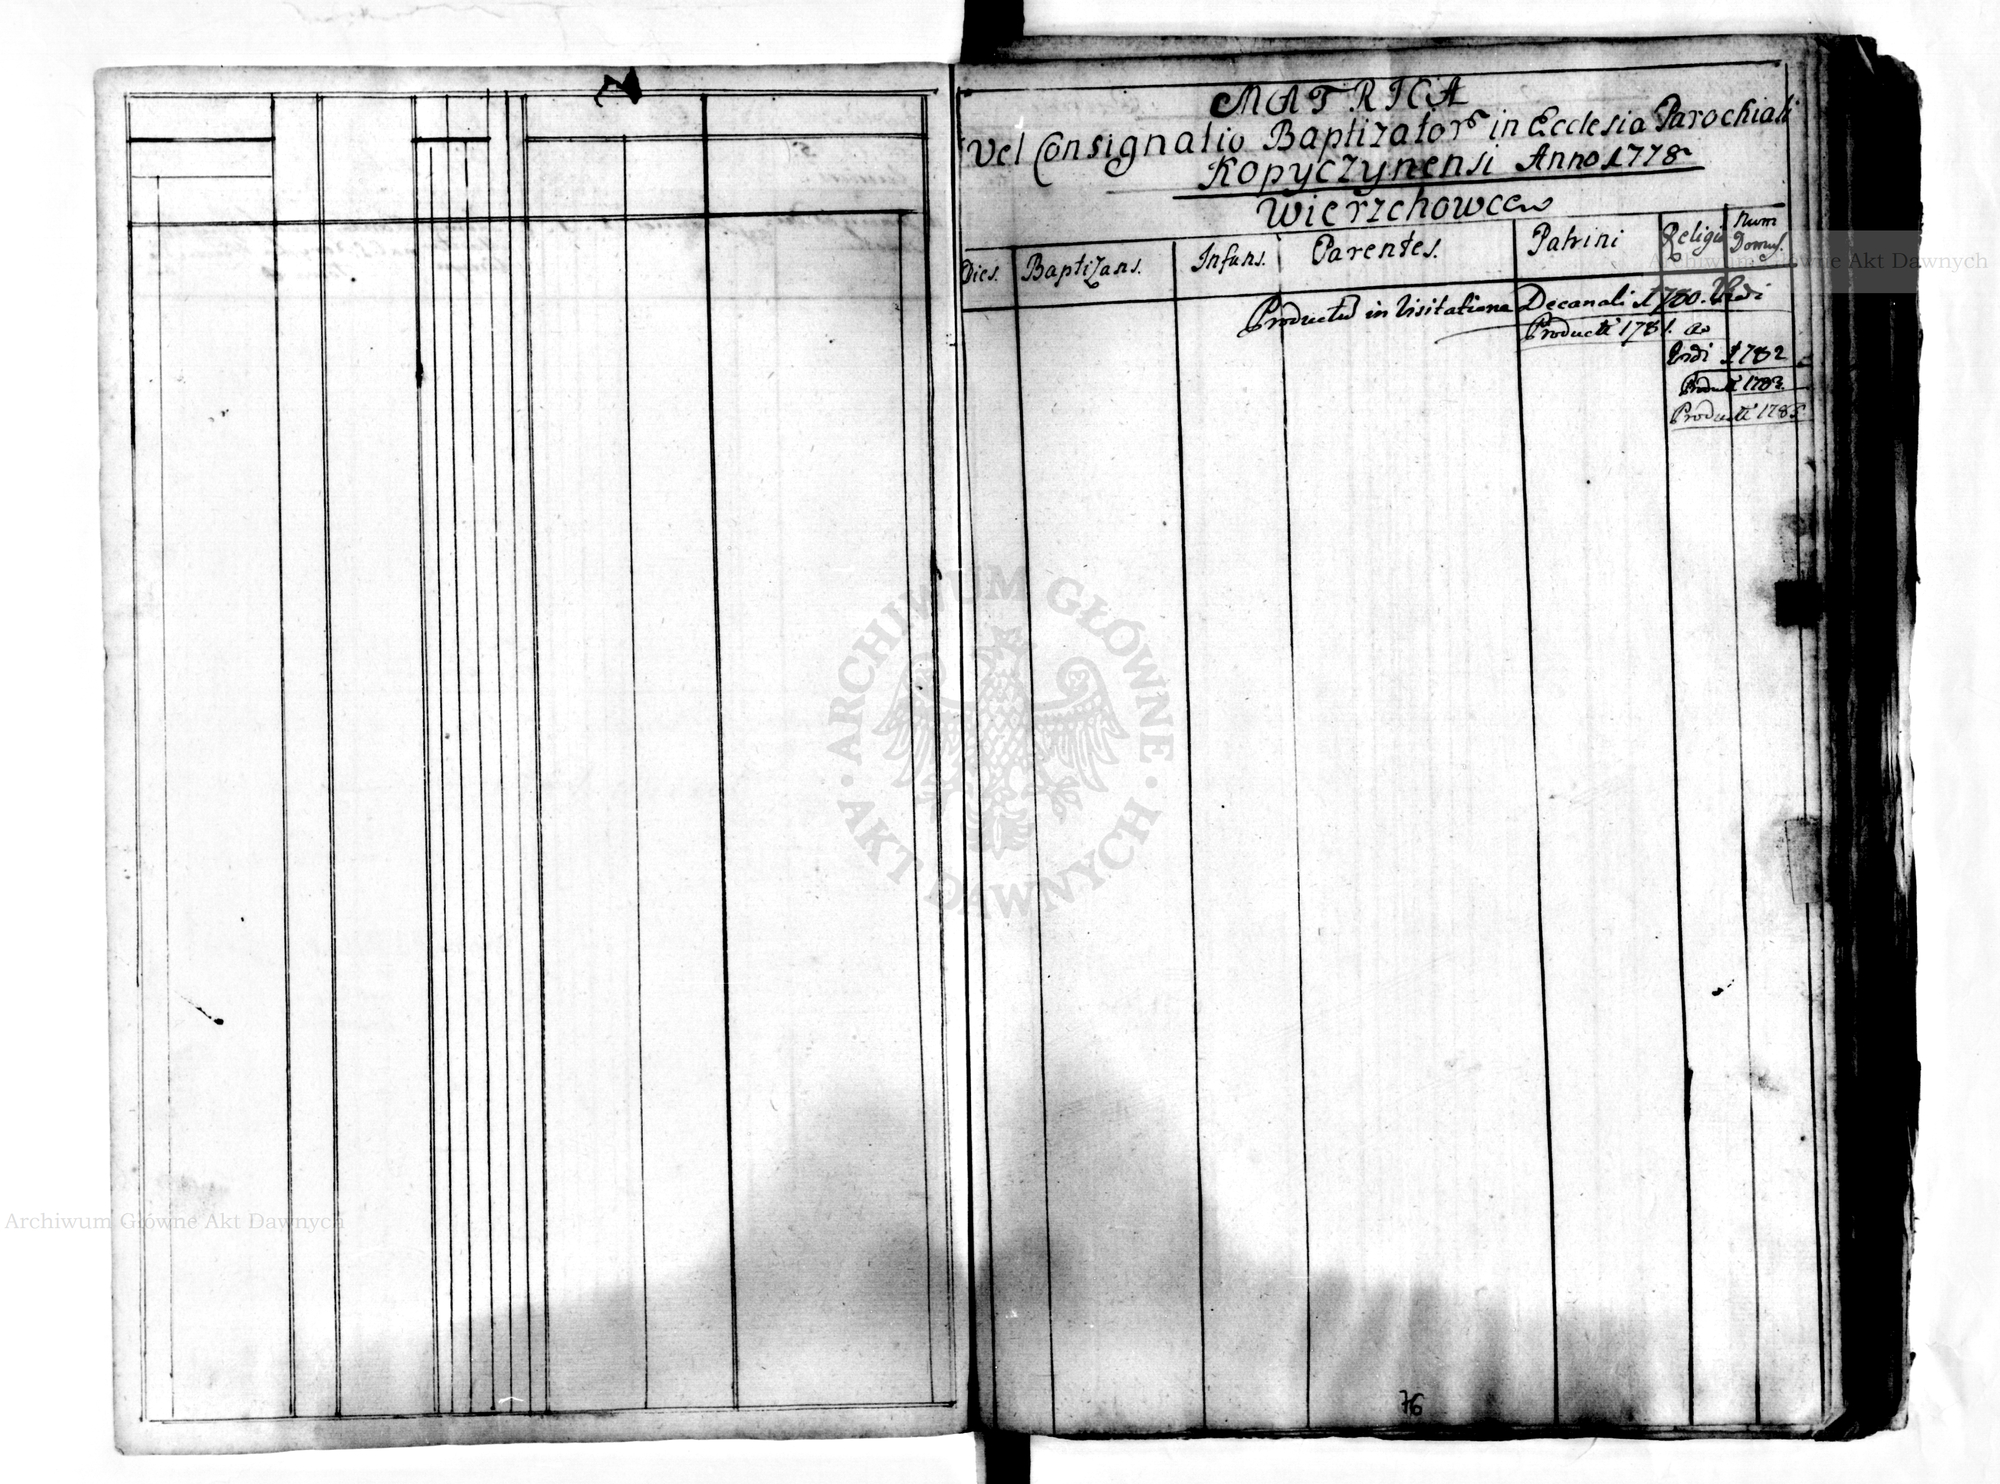 MATRICA
Vel Consignatio Baptizator in Ecclesia Parochiali
Kopyczynensi Anno 1778
Wierzchowce
Dies. Baptizans. Infans. Parentes. Patrini Religio Num Domus.
Productu in Visitatione Decanali 1780.
Product 1781.
1782
Product 1783.
Product 1785
76
ARCHIWUM GŁÓWNE AKT DAWNYCH
Archiwum Główne Akt Dawnych
Archiwum Główne Akt Dawnych